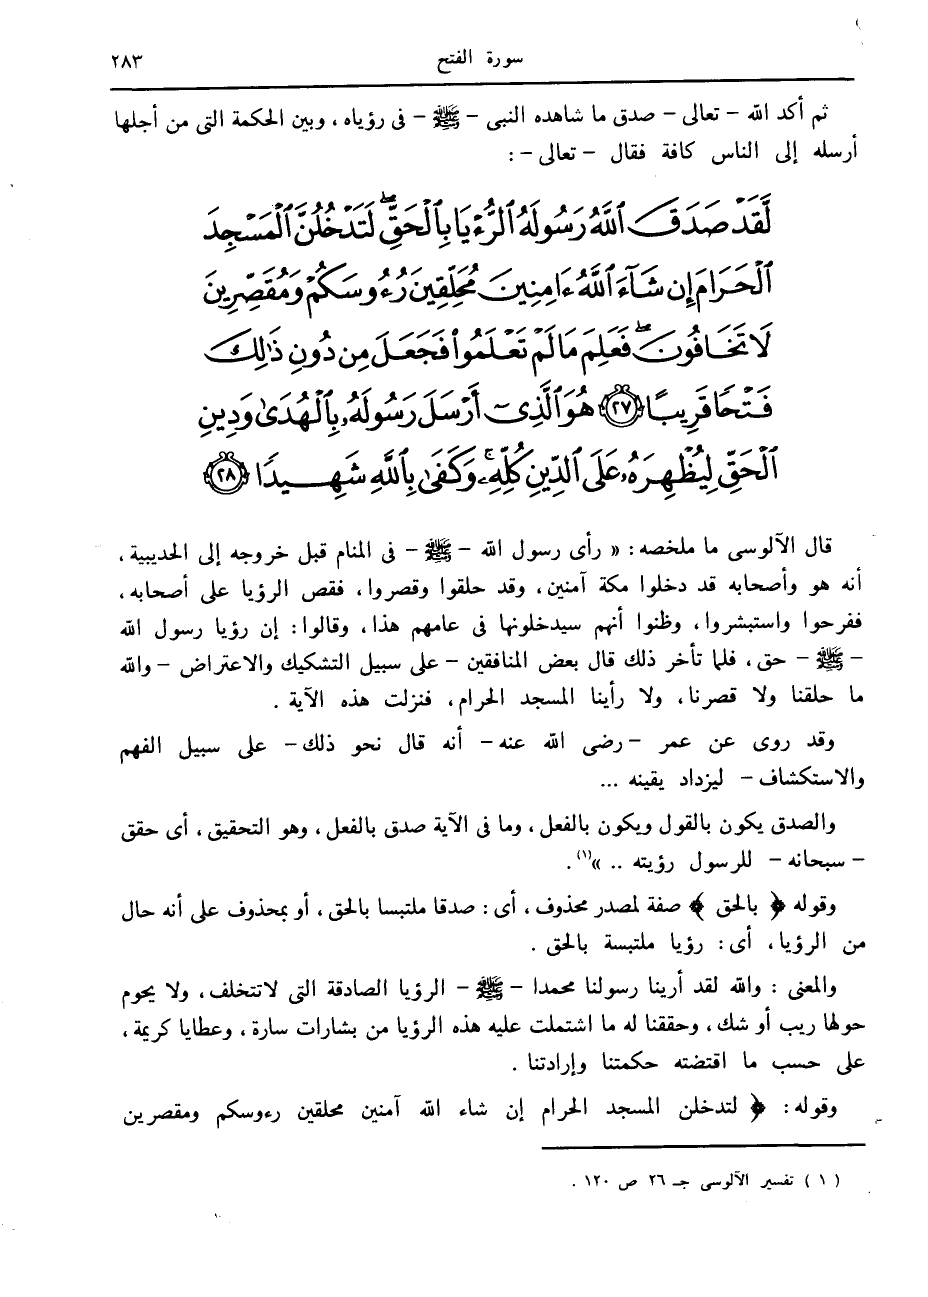 سورة الفتح ٢٨٣
ثم أكد الله – تعالى – صدق ما شاهده النبى – ﷺ – فى رؤياه ، وبين الحكمة التى من أجلها
أرسله إلى الناس كافة فقال – تعالى – :
لَّقَدْ صَدَقَ ٱللَّهُ رَسُولَهُ ٱلرُّءْيَا بِٱلْحَقِّ ۖ لَتَدْخُلُنَّ ٱلْمَسْجِدَ
ٱلْحَرَامَ إِن شَآءَ ٱللَّهُ ءَامِنِينَ مُحَلِّقِينَ رُءُوسَكُمْ وَمُقَصِّرِينَ
لَا تَخَافُونَ ۖ فَعَلِمَ مَا لَمْ تَعْلَمُوا۟ فَجَعَلَ مِن دُونِ ذَٰلِكَ
فَتْحًا قَرِيبًا ٢٧ هُوَ ٱلَّذِىٓ أَرْسَلَ رَسُولَهُۥ بِٱلْهُدَىٰ وَدِينِ
ٱلْحَقِّ لِيُظْهِرَهُۥ عَلَى ٱلدِّينِ كُلِّهِۦ ۚ وَكَفَىٰ بِٱللَّهِ شَهِيدًا ٢٨
قال الآلوسى ما ملخصه : « رأى رسول الله – ﷺ – فى المنام قبل خروجه إلى الحديبية ،
أنه هو وأصحابه قد دخلوا مكة آمنين ، وقد حلقوا وقصروا ، فقص الرؤيا على أصحابه ،
ففرحوا واستبشروا ، وظنوا أنهم سيدخلونها فى عامهم هذا ، وقالوا : إن رؤيا رسول الله
– ﷺ – حق ، فلما تأخر ذلك قال بعض المنافقين – على سبيل التشكيك والاعتراض – والله
ما حلقنا ولا قصرنا ، ولا رأينا المسجد الحرام ، فنزلت هذه الآية .
وقد روى عن عمر – رضى الله عنه – أنه قال نحو ذلك – على سبيل الفهم
والاستكشاف – ليزداد يقينه ...
والصدق يكون بالقول ويكون بالفعل ، وما فى الآية صدق بالفعل ، وهو التحقيق ، أى حقق
– سبحانه – للرسول رؤيته .. »(١) .
وقوله ﴿ بالحق ﴾ صفة لمصدر محذوف ، أى : صدقا ملتبسا بالحق ، أو بمحذوف على أنه حال
من الرؤيا ، أى : رؤيا ملتبسة بالحق .
والمعنى : والله لقد أرينا رسولنا محمدا – ﷺ – الرؤيا الصادقة التى لاتتخلف ، ولا يحوم
حولها ريب أو شك ، وحققنا له ما اشتملت عليه هذه الرؤيا من بشارات سارة ، وعطايا كريمة ،
على حسب ما اقتضته حكمتنا وإرادتنا .
وقوله : ﴿ لتدخلن المسجد الحرام إن شاء الله آمنين محلقين رءوسكم ومقصرين
( ١ ) تفسير الآلوسى جـ ٢٦ ص ١٢٠ .